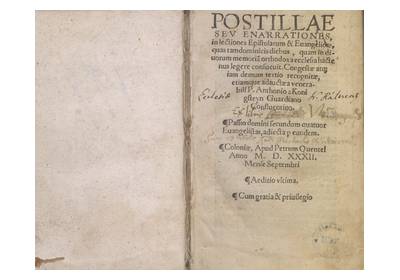 POSTILLAE
SEV ENARRATIONES,
in lectiones Epistolarum & Euangeliorū,
quas tam dominicis diebus, quam in di
uorum memoriā orthodoxa ecclesia hacte
nus legere consueuit. Congestæ atq;
iam demum tertio recognitæ,
etiamque adauctæ a venera
bili P. Anthonio a Koni
gsteyn Guardiano
Conflugentino.
Ecclesiæ
Ex libris
¶Passio domini secundum quatuor
Euangelistas, adiecta p eundem.
Coloniæ, Apud Petrum Quentel
Anno M. D. XXXII.
Mense Septembri
¶Aeditio vltima.
¶Cum gratia & priuilegio